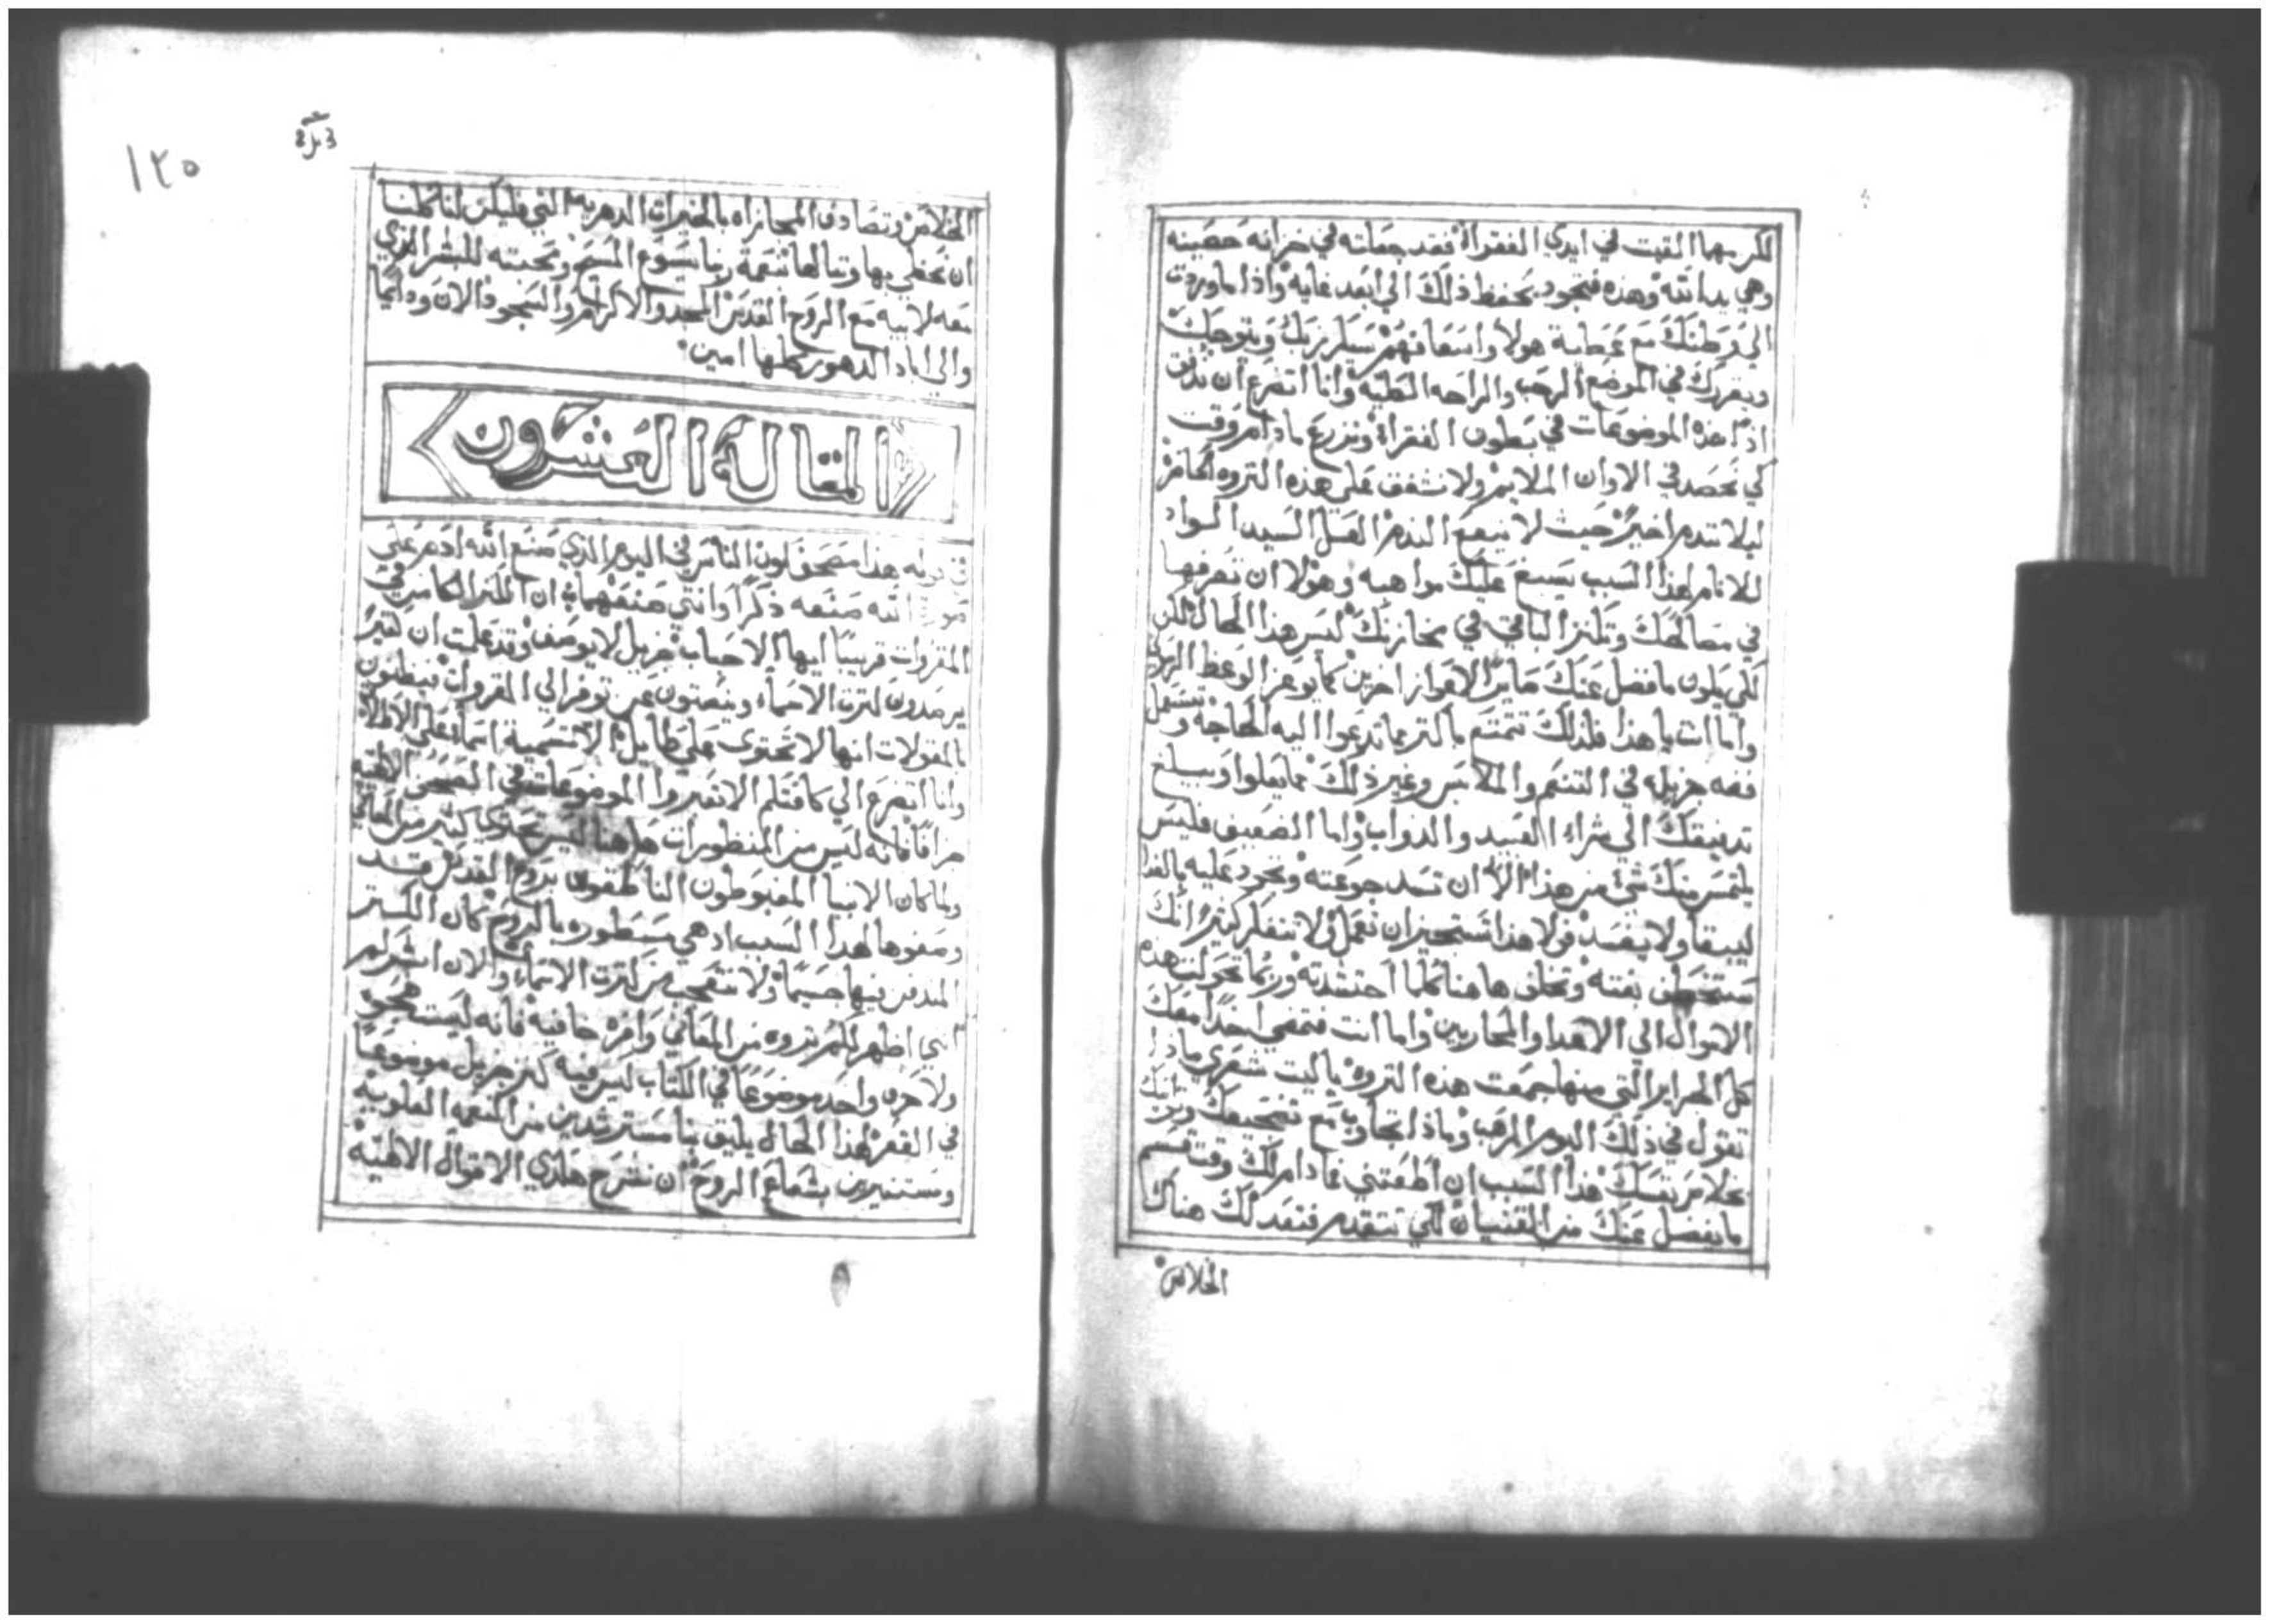 لكن مهما القيت في ايدي الفقراء فقد جعلته في خزانه حصينه
وهي يد الله وهذه فتجود بحفظ ذلك الي ابعد غايه واذا ما وردت
الي وطنك مع عطية هولاء واسعافهم سيكرزبك ويتوجك
ويقررك في الموضع الرحب والراحه الكليه وانا اتضرع ان ندفق
اذًا هذه الموضوعات في بطون الفقراء ونزرع مادام وقت
كي نحصد في الاوان الملايم ولا نشفق علي هذه الثروه الحاضره
ليلا نندم اخيرًا حيث لا ينفع الندم لعل السيد الجواد
للانام لهذا السبب يسبغ عليك مواهبه وهو لا ان تصرفها
في مصالحك وتكنز الباقي في مخازنك ليس هذا الحال لكن
لكي يكون ما فضل عنك جابرًا لاعواز اخرين كما يوعز الوعظ الرسولي
واما انت يا هذا فلذلك تتمتع باكثر مما تدعوا اليه الحاجه وتستعمل
فضه جزيله في التنعم والملابس وغير ذلك مما يعلوا ويبلغ
تدنيقك الي شراء العبيد والدواب واما الضعيف فليس
يلتمس منك شي من هذا الا ان تسد جوعته وتجود عليه بالغدا
ليبقا ولا يفسد فولا هذا تستجيز ان تعمل ولا تتفكر كثيرًا انك
ستختطف بغتة وتخلف هاهنا كلما احتشدته وربما تحولت هذه
الاموال الي الاعدا والمحاربين واما انت فتمضي اخدًا معك
كل الجراير التي منها جمعت هذه الثروه يا ليت شعري ماذا
تقول في ذلك اليوم المرهب وماذا تجاوب مع تضجيعك وتوانيك
بخلاص نفسك لهذا السبب ان اطعتني فمادام لك وقت قسم
ما يفضل عنك من القنيان لكي تتقدم فتعد لك هناك
الخلاص
١٢٥
الخلاص وتصادف المجازاه بالخيرات الدهريه التي فليكن لنا كلنا
ان نحظي بها وننالها بنعمة ربنا يسوع المسيح ومحبته للبشر الذي
معه لابيه مع الروح القدس المجد والاكرام والسجود الان ودايمًا
والي اباد الدهور كلها امين
المقالة العشرون
في قوله هذا مصحف كون الناس في اليوم الذي صنع الله ادم علي
صورة الله صنعه ذكرًا وانثي صنعهما ان الكنز الكامن في
المقروات قريبًا ايها الاحباب جزيل لا يوصف وقد علمت ان كثيرًا
يرصدون كثرت الاسماء وينصتون عمن توفر الي المقروات فيظنون
بالمقولات انها لا تحتوي علي طايل الا تسمية اسماء علي الاطلاق
وانا اتضرع الي كافتكم الا تعبروا الموضوعات في الصحف الالهيه
جزافًا فانه ليس من المنظورات هاهنا ليس يحتوي كثير من المعاني
ولما كان الانبيا المغبوطون الناطقون بروح القدس قد
وصفوها لهذا السبب اذ هي مسطوره بالروح كان الكنز
المندفن فيها جسيمًا ولا تتعجب من كثرت الاسماء والان اشرلم
انني اظهر لكم ثروه من المعاني وافره خافيه فانه ليست هجوه
ولا حرف واحد موضوعًا في الكتاب ليس فيه كنز جزيل موضوعًا
في القعر لهذا الحال يليق بنا مسترشدين من النعمه العلويه
ومستنيرين بشعاع الروح ان نشرح هكذي الاقوال الالهيه